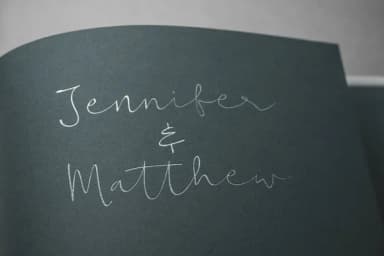 Jennifer
&
Matthew